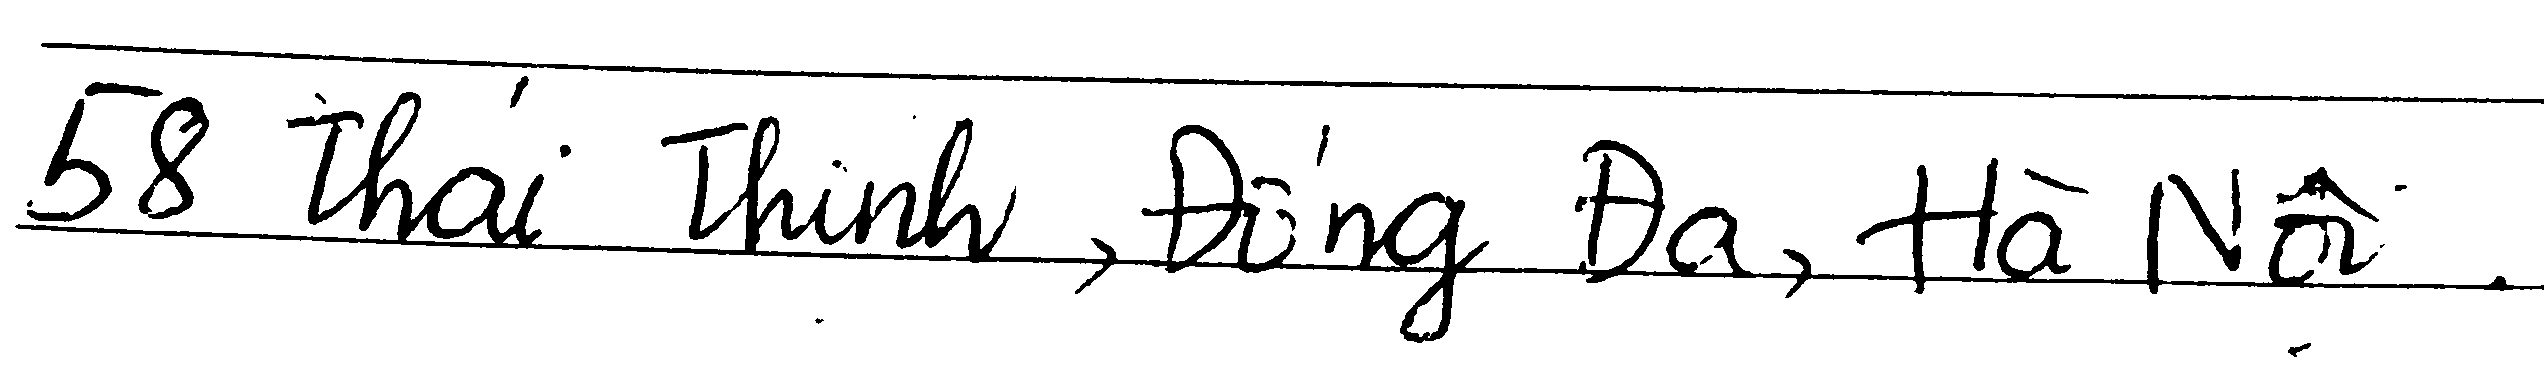 58 Thái Thịnh, Đống Đa, Hà Nội.